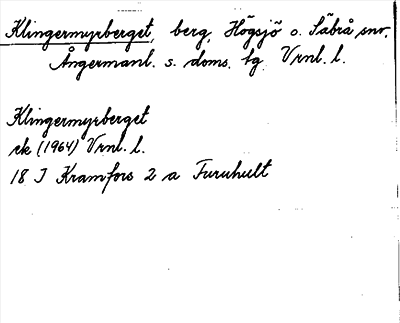 Klingermyrberget, berg, Högsjö o. Säbrå snr,
Ångermanl. s. doms. tg. Vrnl. l.
Klingermyrberget
ek (1964) Vrnl. l.
18 I Kramfors 2 a Furuhult